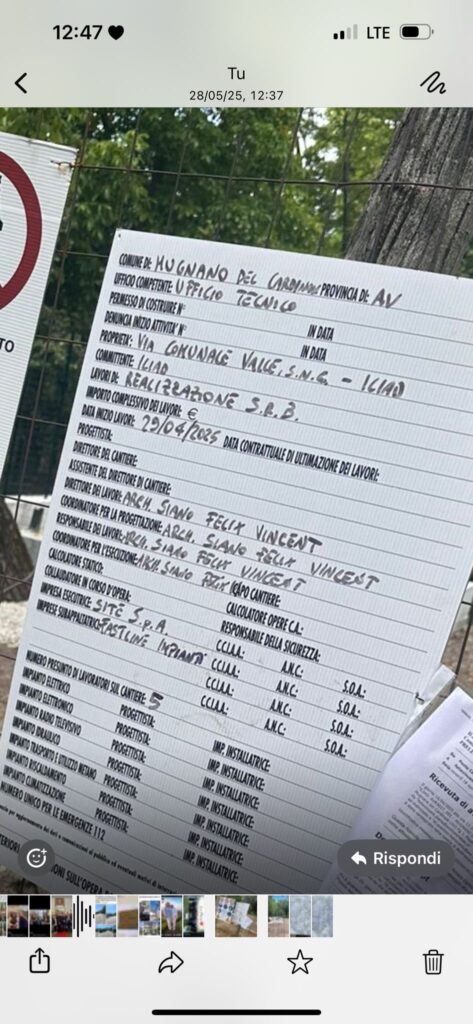 12:47
LTE
Tu
28/05/25, 12:37
TO
COMUNE DI: MUGNANO DEL CARDINALE PROVINCIA DI: AV
UFFICIO COMPETENTE: UFFICIO TECNICO
PERMESSO DI COSTRUIRE N° IN DATA
DENUNCIA INIZIO ATTIVITA' N° IN DATA
PROPRIETA': VIA COMUNALE VALLE, S.N.C. - ILIAD
COMMITTENTE: ILIAD
LAVORI DI: REALIZZAZIONE S.R.B.
IMPORTO COMPLESSIVO DEI LAVORI: €
DATA INIZIO LAVORI: 29/04/2025 DATA CONTRATTUALE DI ULTIMAZIONE DEI LAVORI:
PROGETTISTA:
DIRETTORE DEL CANTIERE:
ASSISTENTE DEL DIRETTORE DI CANTIERE:
DIRETTORE DEI LAVORI: ARCH. SIANO FELIX VINCENT
COORDINATORE PER LA PROGETTAZIONE: ARCH. SIANO FELIX VINCENT
RESPONSABILE DEI LAVORI: ARCH. SIANO FELIX VINCENT
COORDINATORE PER L'ESECUZIONE: ARCH. SIANO FELIX CAPO CANTIERE:
CALCOLATORE STATICO: CALCOLATORE OPERE C.A.:
COLLAUDATORE IN CORSO D'OPERA: RESPONSABILE DELLA SICUREZZA:
IMPRESA ESECUTRICE: SITE S.p.A. C.C.I.A.A.: A.N.C.: S.O.A.:
IMPRESE SUBAPPALTATRICI: FASTLINE IMPIANTI C.C.I.A.A.: A.N.C.: S.O.A.:
C.C.I.A.A.: A.N.C.: S.O.A.:
C.C.I.A.A.: A.N.C.: S.O.A.:
NUMERO PRESUNTO DI LAVORATORI SUL CANTIERE: 5
IMPIANTO ELETTRICO PROGETTISTA: IMP. INSTALLATRICE:
IMPIANTO ELETTRONICO PROGETTISTA: IMP. INSTALLATRICE:
IMPIANTO RADIO TELEVISIVO PROGETTISTA: IMP. INSTALLATRICE:
IMPIANTO IDRAULICO PROGETTISTA: IMP. INSTALLATRICE:
IMPIANTO TRASPORTO E UTILIZZO METANO PROGETTISTA: IMP. INSTALLATRICE:
IMPIANTO RISCALDAMENTO PROGETTISTA: IMP. INSTALLATRICE:
IMPIANTO CLIMATIZZAZIONE PROGETTISTA: IMP. INSTALLATRICE:
NUMERO UNICO PER LE EMERGENZE 112
Ricevuta
Rispondi